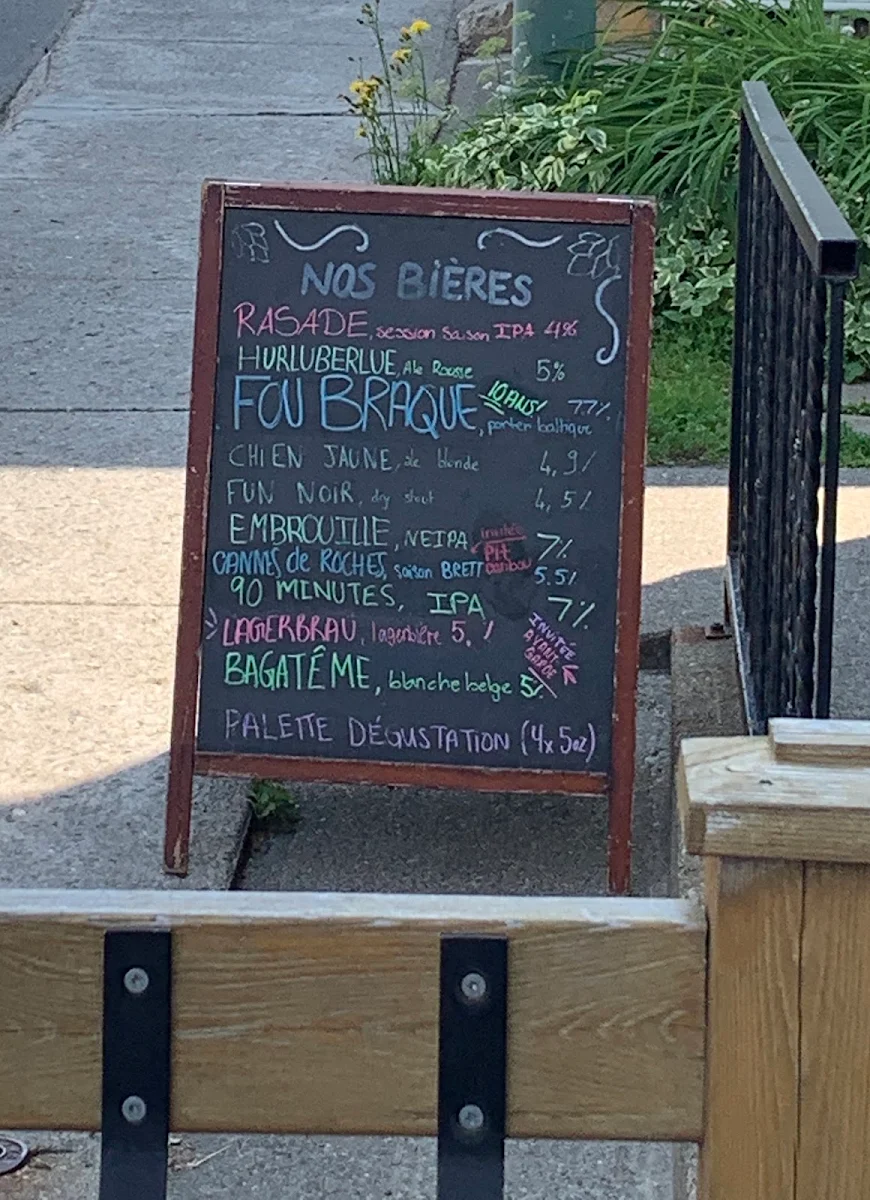 NOS BIÈRES
RASADE, session saison IPA 4%
HURLUBERLUE, Ale Rousse 5%
FOU BRAQUE, 10 ANS! 7.7%
porter baltique
CHIEN JAUNE, ale blonde 4,9%
FUN NOIR, dry stout 4,5%
EMBROUILLE, NEIPA 7%
invitée
Pit
caribou
CANNES de ROCHES, saison BRETT 5.5%
90 MINUTES, IPA 7%
LAGERBRAU, lagerbière 5, %
INVITÉE
AVANT
GARDE
BAGATÊME, blanche belge 5%
PALETTE DÉGUSTATION (4x5oz)